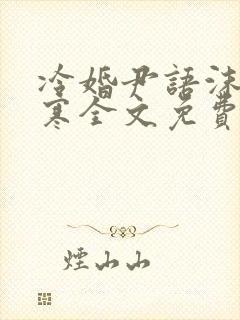 冷婚尹語沫
寒全文免費
煙山山